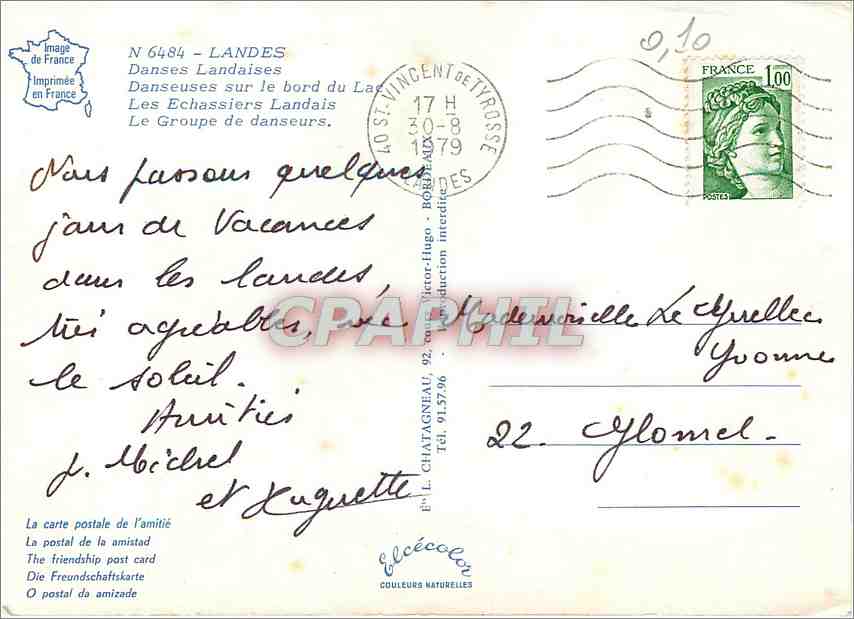 Image
de France
Imprimée
en France
N 6484 - LANDES
Danses Landaises
Danseuses sur le bord du Lac
Les Echassiers Landais
Le Groupe de danseurs.
40 ST-VINCENT DE TYROSSE
17 H
30-8
1979
LANDES
0,10
FRANCE
1,00
POSTES
Nous passons quelques
jours de Vacances
dans les landes,
très agréables, avec
le soleil.
Amitiés
J. Michel
et Huguette
Ets L. CHATAGNEAU, 92, cours Victor-Hugo - BORDEAUX
Tél. 91.57.96 - Reproduction interdite
CPAPHIL
Mademoiselle Le
Yvonne
22. Glomel.
La carte postale de l'amitié
La postal de la amistad
The friendship post card
Die Freundschaftskarte
O postal da amizade
Elcécolor
COULEURS NATURELLES